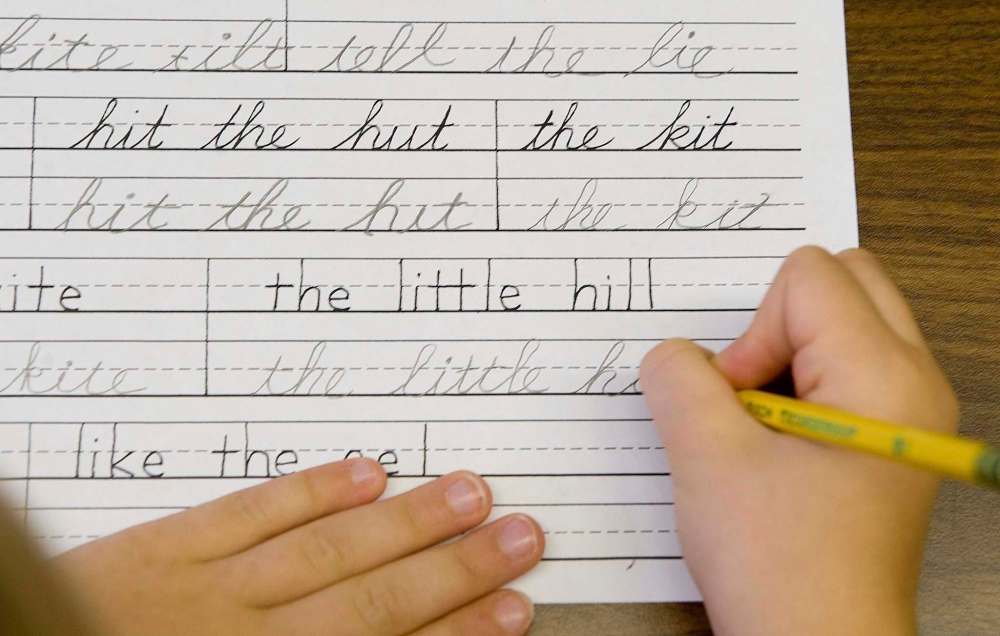 kite tilt tell the lie
hit the hut the kit
hit the hut the kit
ite the little hill
kite the little hi
like the eel
TICONDEROGA